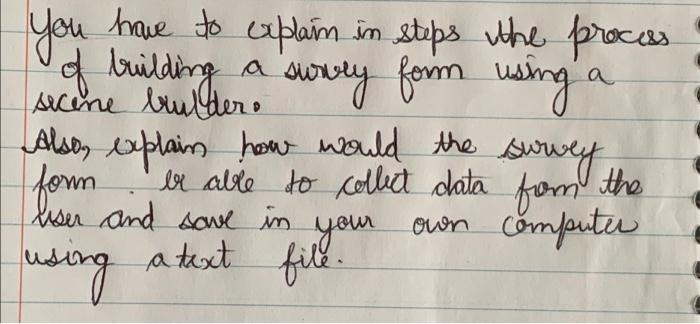 You have to explain in steps the process
of building a survey form using a
scene builder.
Also, explain how would the survey
form be able to collect data from the
user and save in your own computer
using a text file.